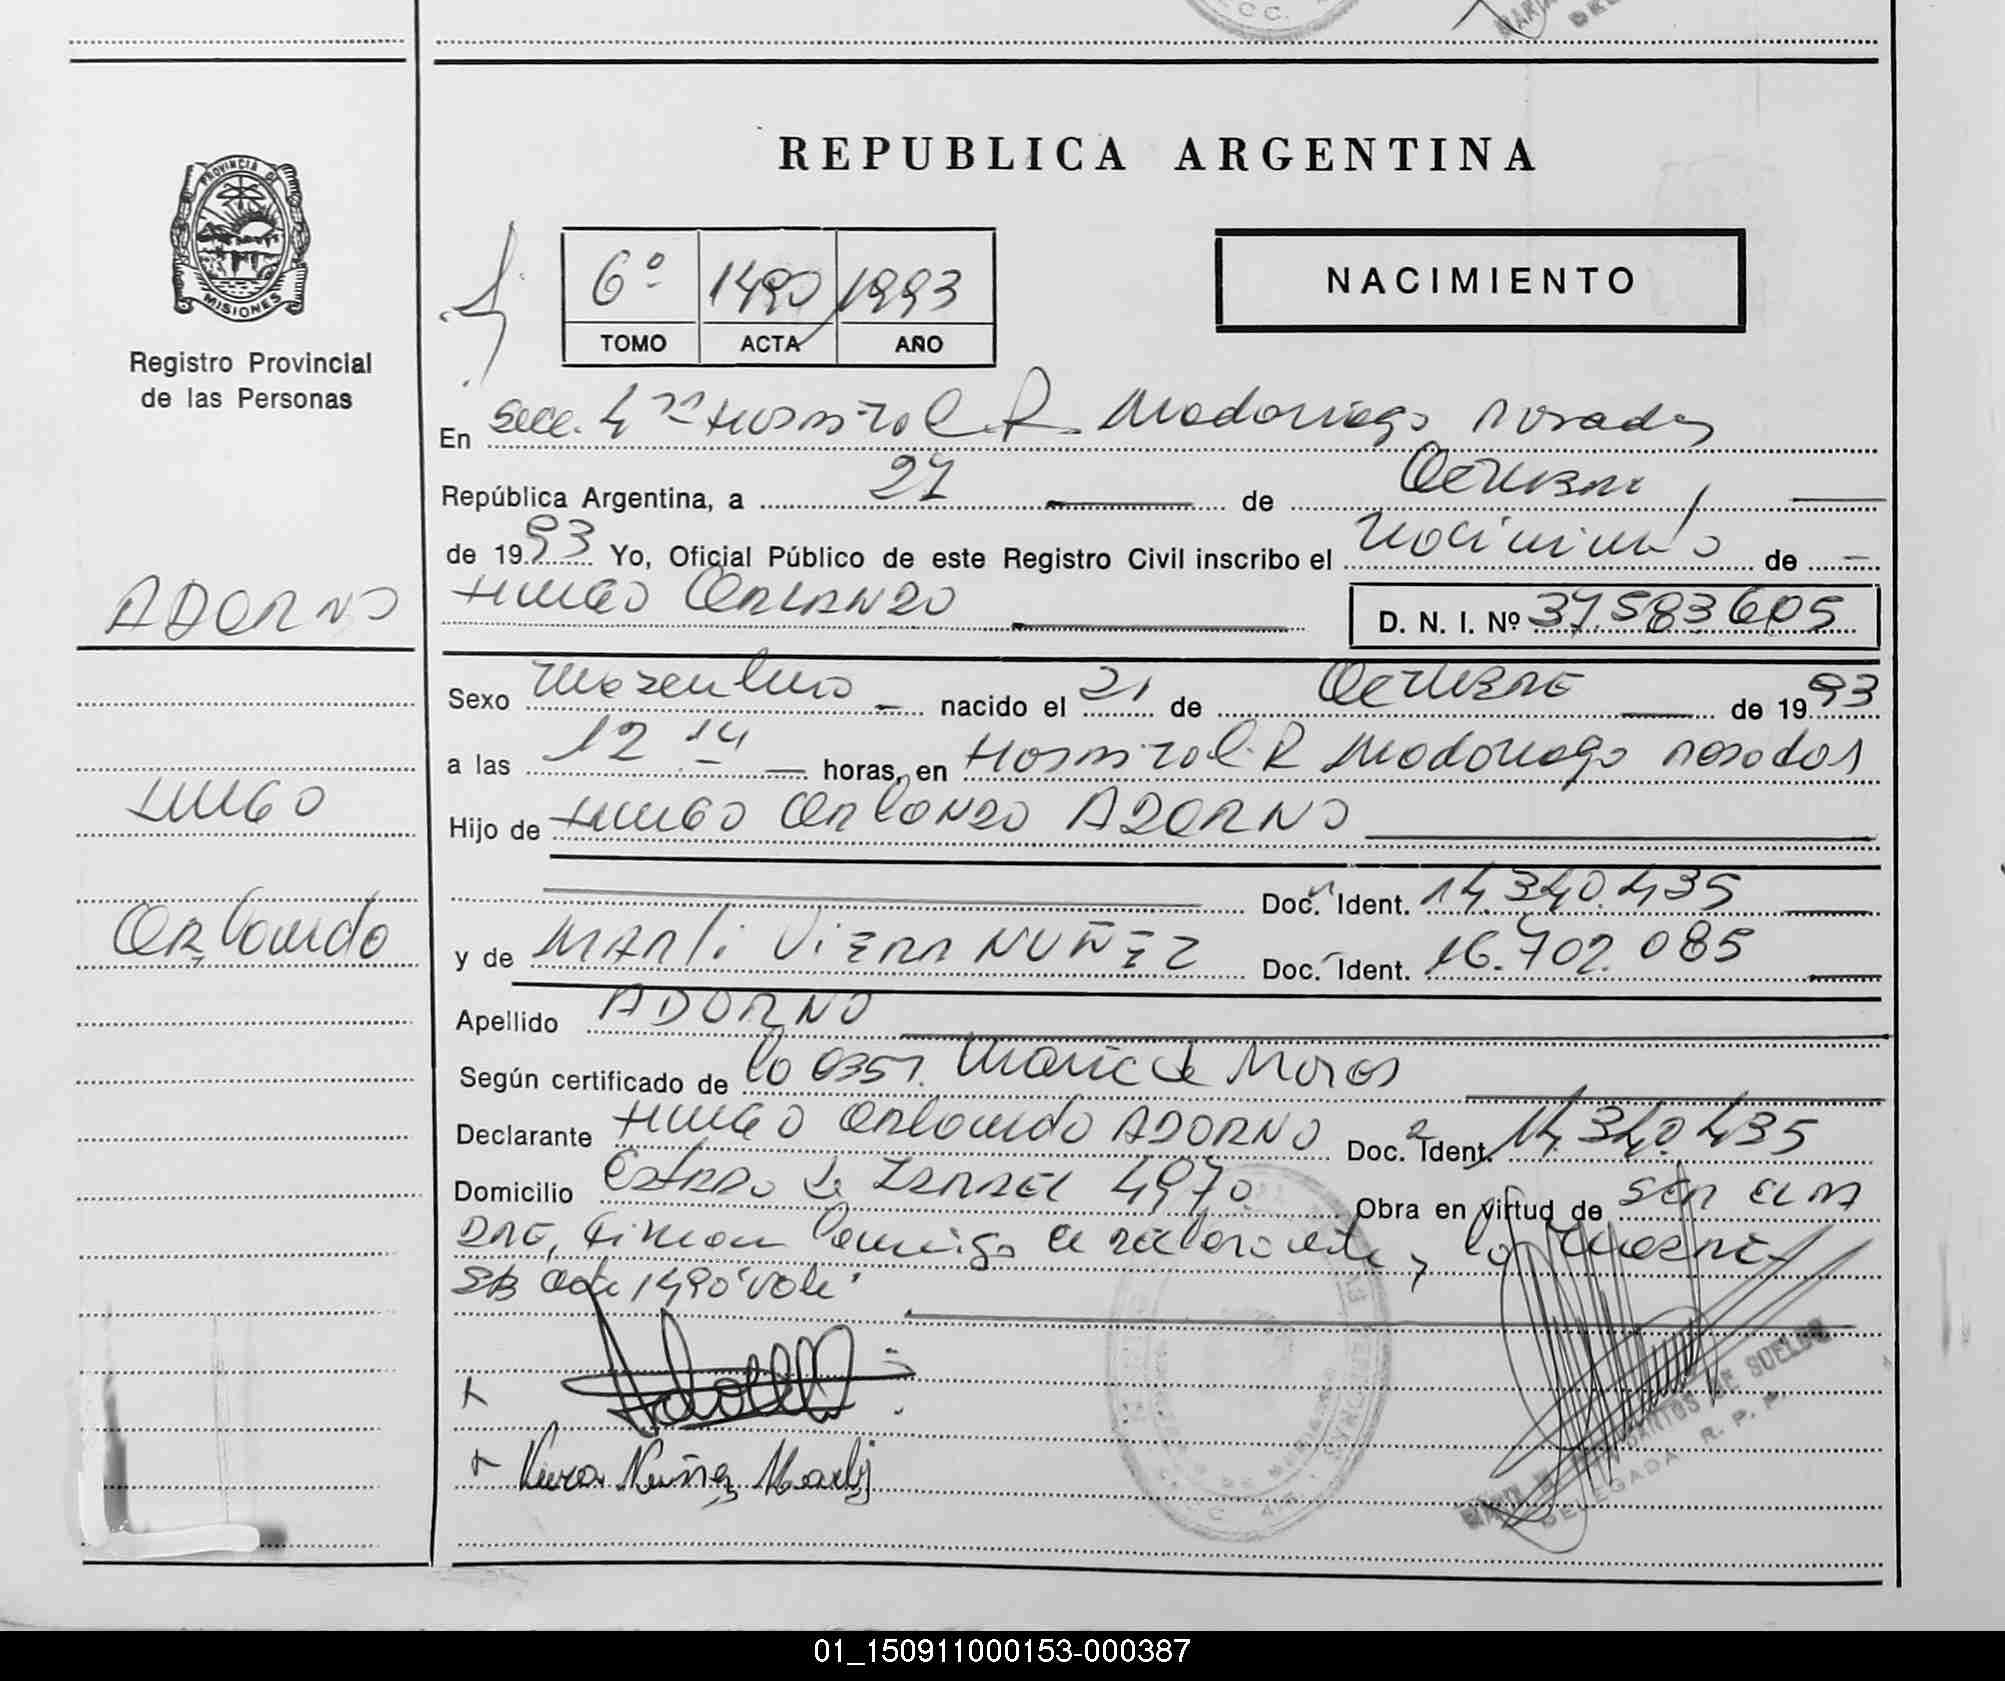 C C.
REPUBLICA ARGENTINA
PROVINCIA DE
MISIONES
Registro Provincial
de las Personas
6º 1490 1993
TOMO ACTA AÑO
NACIMIENTO
En Secc. 4ta Hospital R. Madariaga Posadas
República Argentina, a 27 de Octubre
de 1993 Yo, Oficial Público de este Registro Civil inscribo el Nacimiento de
HUGO ORLANDO
D. N. I. Nº 37.583.605
ADORNO
HUGO
Orlando
Sexo Masculino nacido el 21 de OCTUBRE de 1993
a las 12 14 horas, en Hospital R Madariaga Posadas
Hijo de HUGO ORLANDO ADORNO
Doc. Ident. 14.340.435
y de MARLI VIERA NUÑEZ Doc. Ident. 16.702.085
Apellido ADORNO
Según certificado de la Obst. de Moros
Declarante HUGO Orlando ADORNO Doc. Ident. 14.340.435
Domicilio Estado de ISRAEL 4970 Obra en virtud de SER EL PA
DRE, Firman conmigo el declarante y la MADRE
SB acta 1490 "vale"
Viera Nuñez Marli
SANTOS DE SUELDO
DELEGADA R. P. P.
01_150911000153-000387